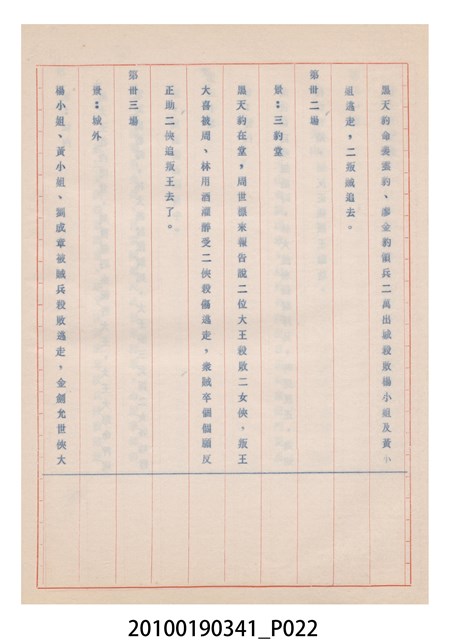 馬天豹命美蛋豹、廖金豹領兵二萬出城殺敗楊小姐及黃小
姐逃走，二叛賊追去。
第卅二場
景：三豹堂
馬天豹在堂，周世雄來報告說二位大王殺敗二女俠，叛王
大喜被周、林用酒灌醉受二俠殺傷逃走，衆賊卒個個願反
正助二俠追叛王去了。
第卅三場
景：城外
楊小姐、黃小姐、劉成章被賊兵殺敗逃走，金劍允世俠大
20100190341_P022